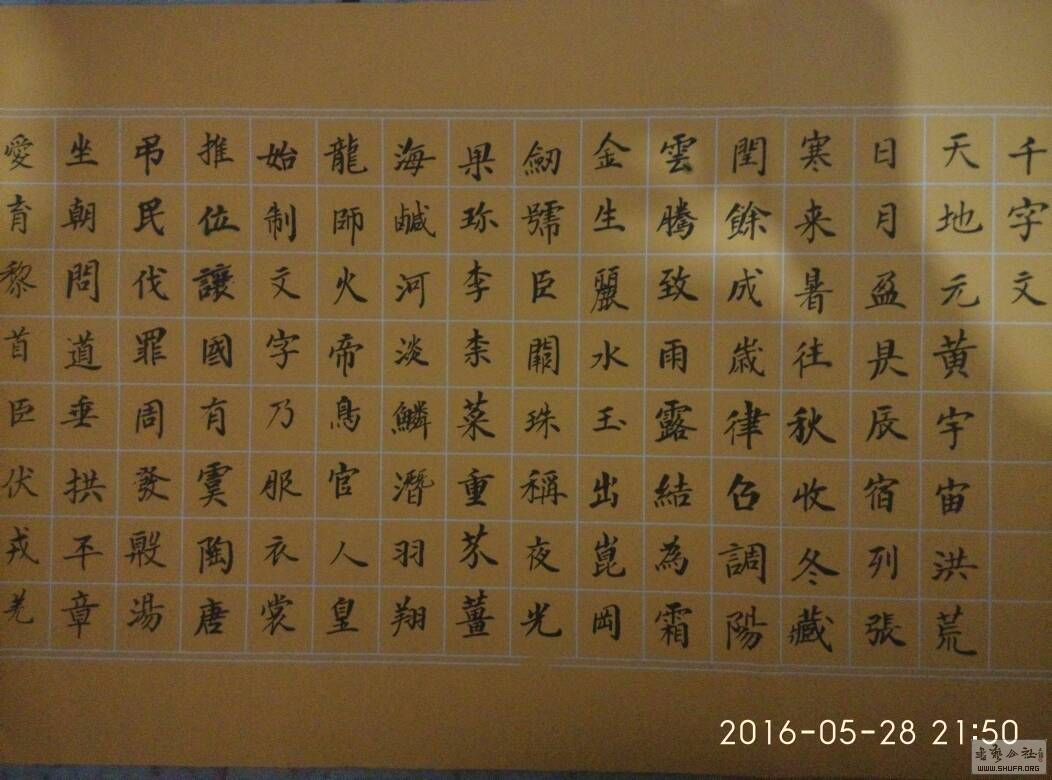 千字文
天地元黄宇宙洪荒
日月盈昃辰宿列張
寒来暑往秋收冬藏
閏餘成歲律召調陽
雲騰致雨露結為霜
金生麗水玉出崑岡
劒號臣闕珠稱夜光
果珍李柰菜重芥薑
海鹹河淡鱗潛羽翔
龍師火帝鳥官人皇
始制文字乃服衣裳
推位讓國有虞陶唐
弔民伐罪周發殷湯
坐朝問道垂拱平章
愛育黎首臣伏戎羌
2016-05-28 21:50
WWW.SHUFA.ORG